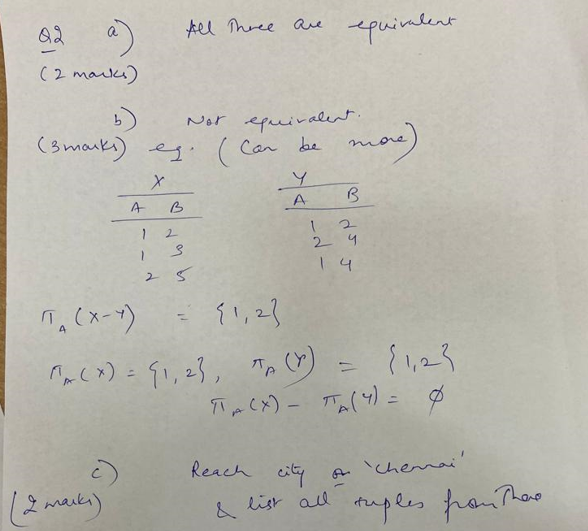 Q2 a) All Three are equivalent
(2 marks)
b) Not equivalent.
(3 marks) eg. (Can be more)
X Y
A B A B
1 2 1 2
1 3 2 4
2 5 1 4
π_A (X-Y) = {1,2}
π_A (X) = {1,2}, π_A (Y) = {1,2}
π_A (X) - π_A (Y) = ∅
c) Reach city 'chennai'
(2 marks) & list all tuples from There